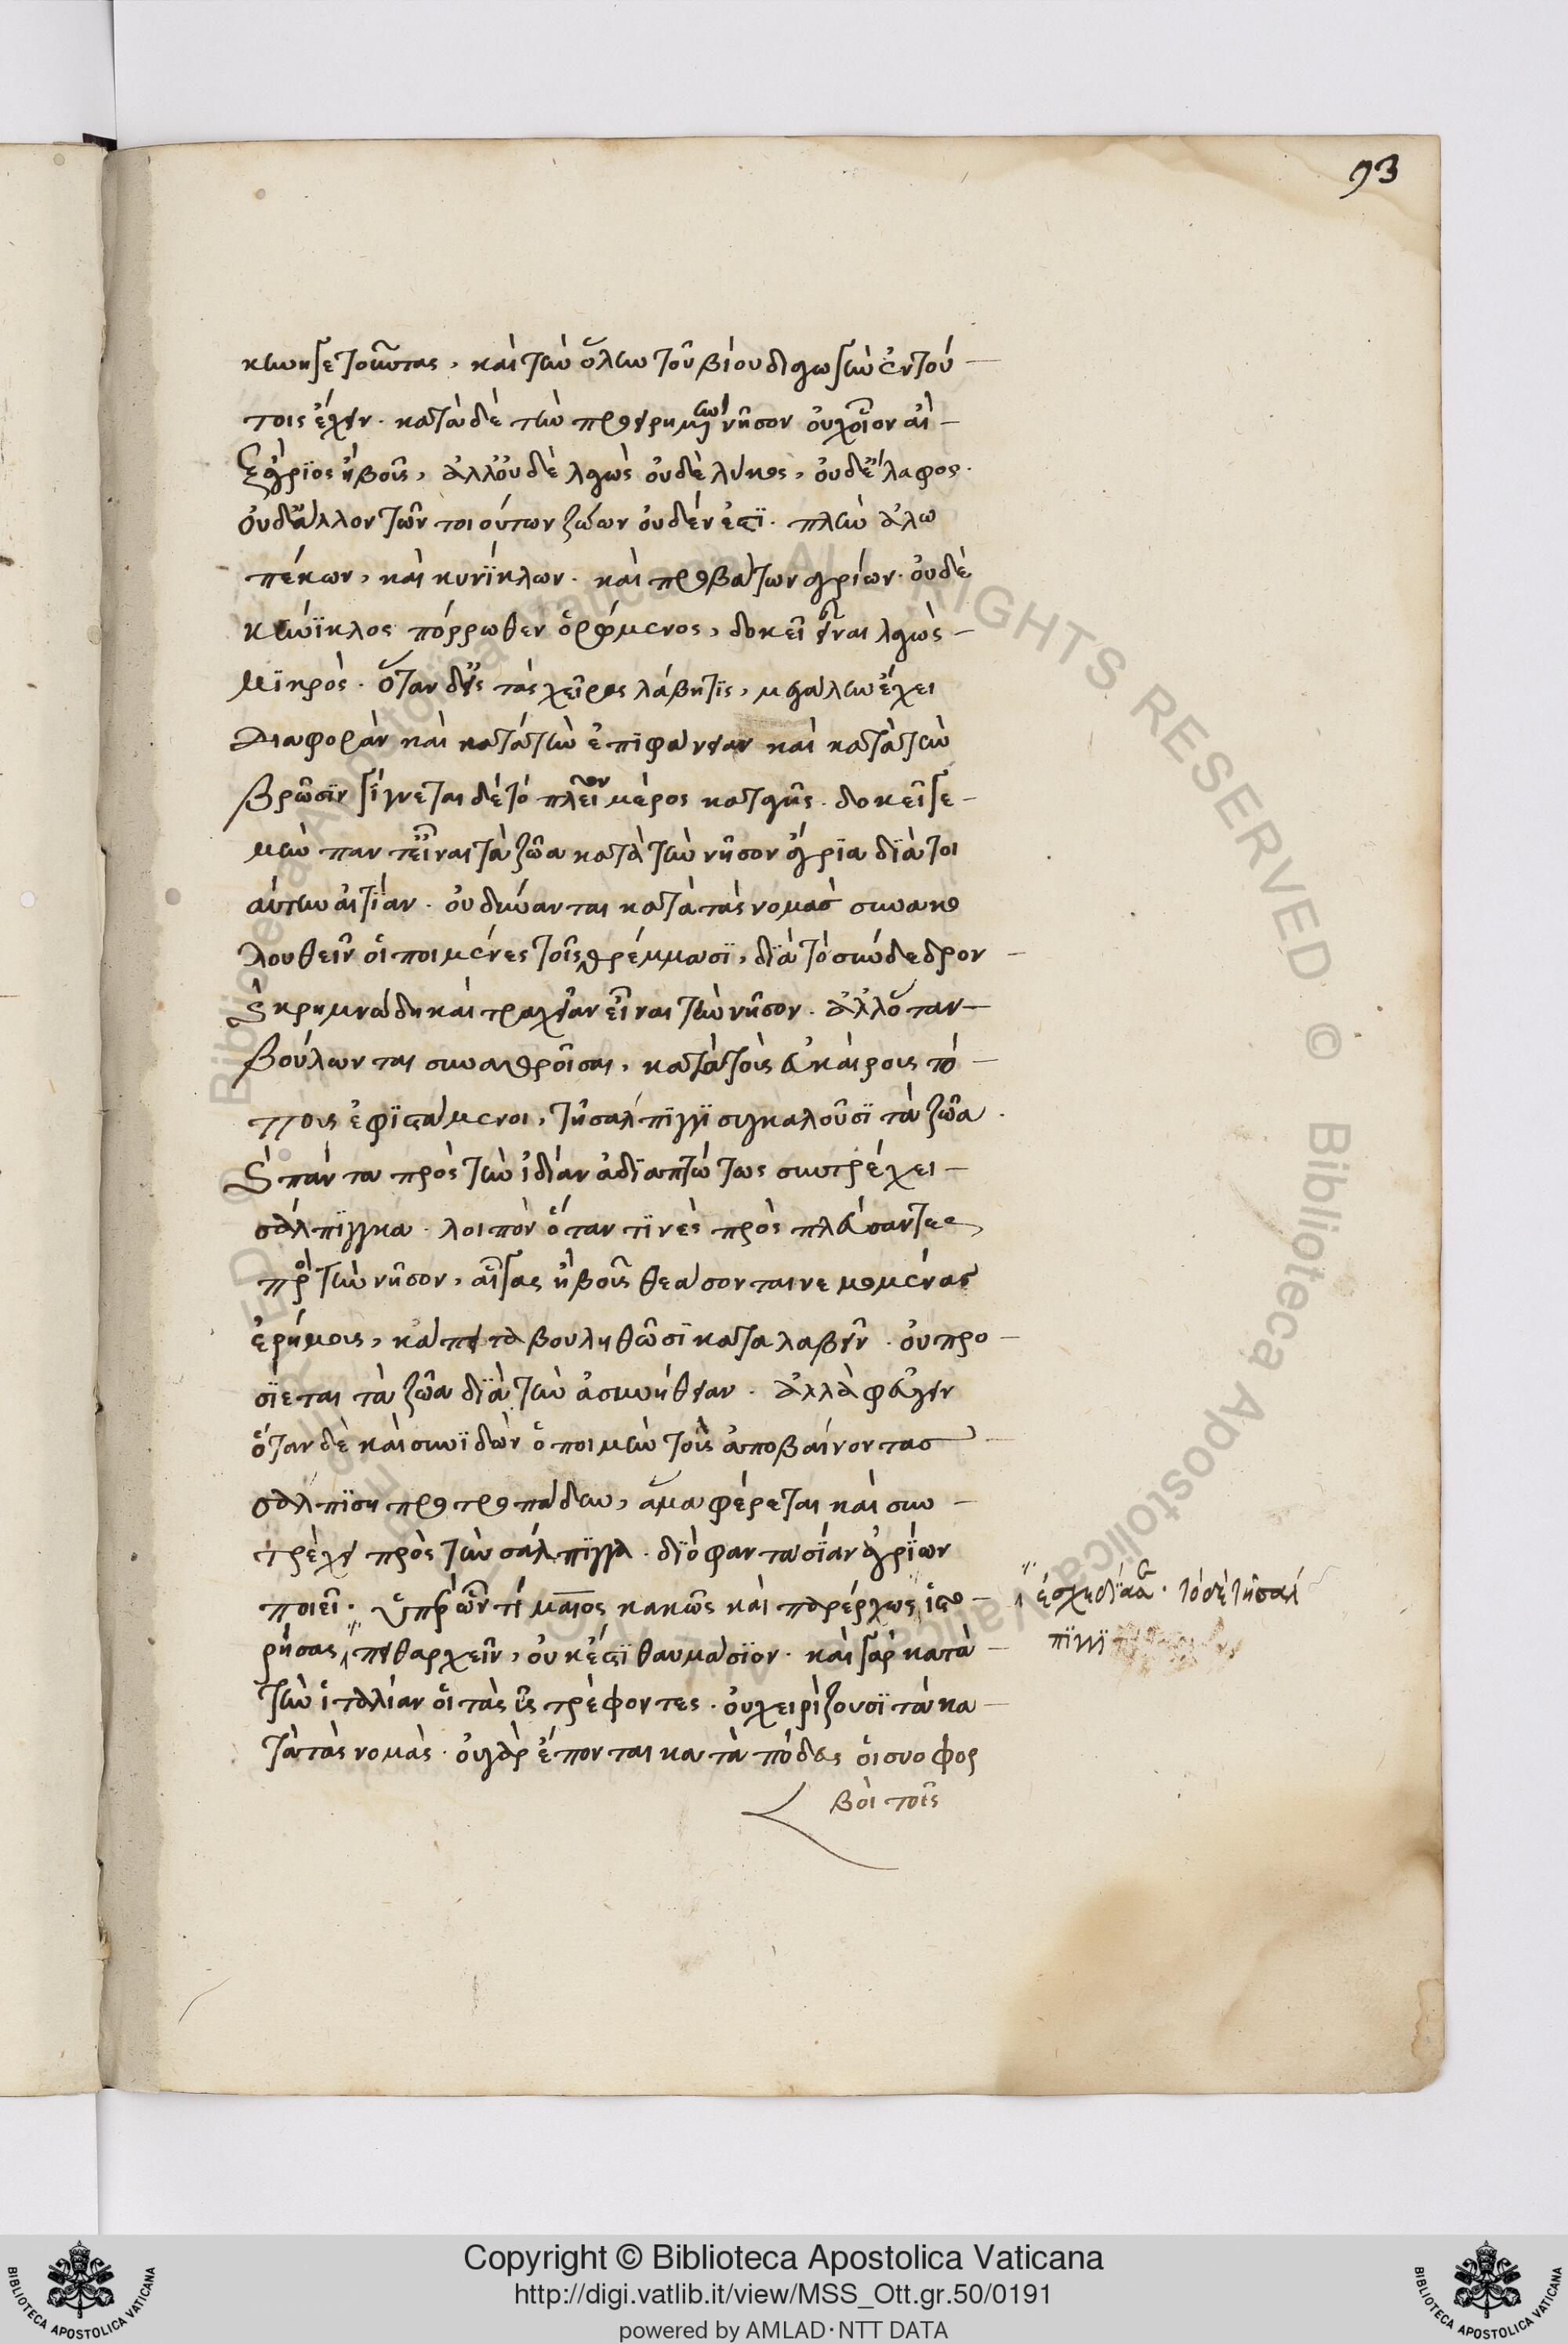 93
κυνηγετοῦντας, καὶ τὴν ὅλην τοῦ βίου διαγωγὴν ἐν τού
τοις ἔχειν. κατὰ δὲ τὴν προειρημένην νῆσον οὐχ οἷον αἲ
ξ ἄγριος ἢ βοῦς, ἀλλ' οὐδὲ λαγὼς οὐδὲ λύκος, οὐδ' ἔλαφος.
οὐδ' ἄλλον τῶν τοιούτων ζώων οὐδέν ἐστϊ. πλὴν ἀλω
πέκων, καὶ κυνΐκλων. καὶ προβάτων ἀγρίων. ὁ δὲ
κύνϊκλος πόρρωθεν ὁρώμενος, δοκεῖ εἶναι λαγὼς
μϊκρὸς. ὅταν δ' εἰς τὰς χεῖρας λάβη τϊς, μεγάλην ἔχει
διαφορὰν καὶ κατὰ τὴν ἐπϊφάνειαν καὶ κατὰ τὴν
βρῶσϊν γίγνεται δὲ τὸ πλεῖον μέρος κατὰ γῆς. δοκεῖ γε
μὴν πάντ' εἶναι τὰ ζῶα κατὰ τὴν νῆσον ἄγρϊα δϊὰ τοι
αύτην αἰτΐαν. οὐ δύνανται κατὰ τὰς νομὰς συνακο
λουθεῖν οἱ ποιμένες τοῖς θρέμμασϊ, δϊὰ τὸ σύνδεδρον
καὶ κρημνώδη καὶ τραχεῖαν εἶναι τὴν νῆσον. ἀλλ' ὅταν
βούλωνται συναθροῖσαι, κατὰ τοὺς εὐκαίρους τό
πους ἐφϊστάμενοι, τῇ σάλπϊγγϊ συγκαλοῦσϊ τὰ ζῶα.
καὶ πάντα πρὸς τὴν ἰδίαν ἀδϊαπτώτως συντρέχει
σάλπϊγγα. λοιπὸν ὅταν τϊνὲς προσπλεύσαντες
πρὸς τὴν νῆσον, αἶγας ἢ βοῦς θεάσονται νεμομένας
ἐρήμους, κἄπειτα βουληθῶσϊ καταλαβεῖν. οὐ προ
σΐεται τὰ ζῶα δϊὰ τὴν ἀσυνήθειαν. ἀλλὰ φεύγειν
ὅταν δὲ καὶ συνϊδὼν ὁ ποιμὴν τοὺς ἀποβαίνοντας
σαλπΐση προτροπάδην, ἅμα φέρεται καὶ συν
τρέχει πρὸς τὴν σάλπϊγγα. δϊὸ φαντασΐαν ἀγρΐων
ποιεῖ. ὑπὲρ ὧν τίμαιος κακῶς καὶ παρέργως ἱστο
ρήσας πειθαρχεῖν, οὐκ ἔστϊ θαυμάσϊον. καὶ γὰρ κατὰ
τὴν ἰταλίαν οἱ τὰς ὗς τρέφοντες. οὐ χειρίζουσϊ τὰ κα
τὰ τὰς νομάς. οὐ γὰρ ἕπονται κατὰ πόδας οἱ συοφορ
βοὶ τοῖς
ἐσχεδΐασε. τὸ δὲ τῇ σάλ
πϊγγϊ
Copyright © Biblioteca Apostolica Vaticana
http://digi.vatlib.it/view/MSS_Ott.gr.50/0191
powered by AMLAD·NTT DATA